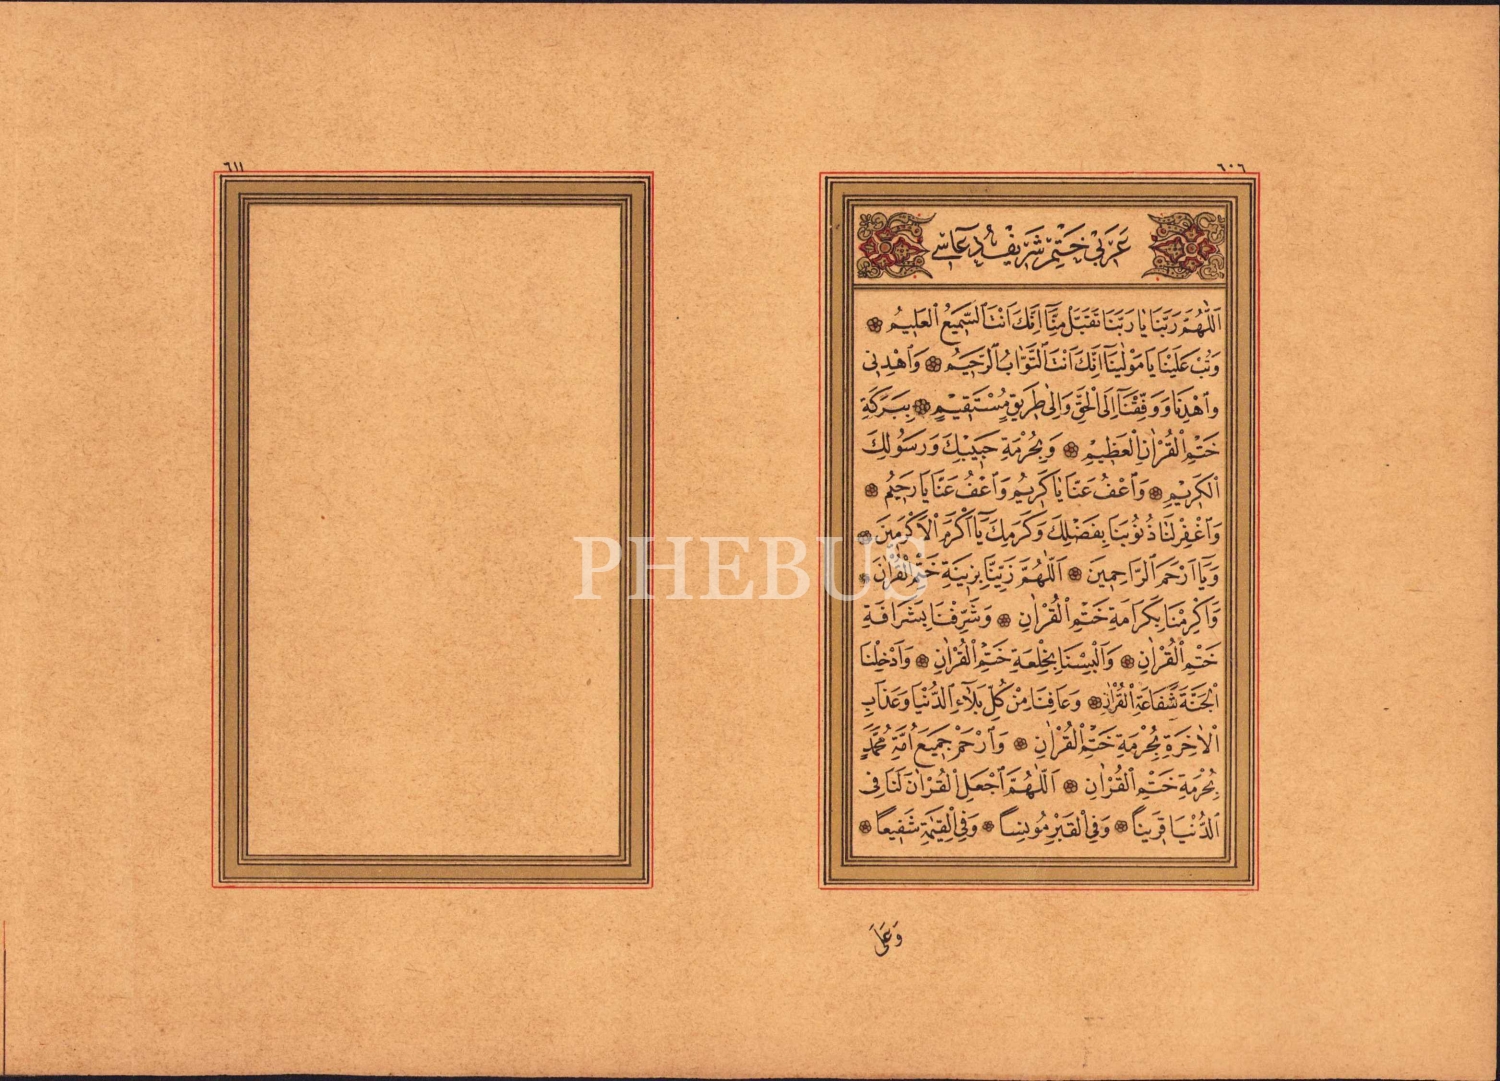 ٦٠٦
عَرَبِى خَتْمِ شَرِيفْ دُعَاسِى
اَللّٰهُمَّ رَبَّنَا يَا رَبَّنَا تَقَبَّلْ مِنَّٓا اِنَّكَ اَنْتَ السَّمِيعُ الْعَلِيمُ
وَتُبْ عَلَيْنَا يَا مَوْلٰينَٓا اِنَّكَ اَنْتَ التَّوَّابُ الرَّحِيمُ ۞ وَاهْدِنِى
وَاهْدِنَا وَوَفِّقْنَٓا اِلَى الْحَقِّ وَاِلٰى طَرِيقٍ مُسْتَقِيمٍ ۞ بِبَرَكَةِ
خَتْمِ الْقُرْاٰنِ الْعَظِيمِ ۞ وَبِحُرْمَةِ حَبِيبِكَ وَرَسُولِكَ
الْكَرِيمِ ۞ وَاعْفُ عَنَّا يَا كَرِيمُ وَاعْفُ عَنَّا يَا رَحِيمُ ۞
وَاغْفِرْ لَنَا ذُنُوبَنَا بِفَضْلِكَ وَكَرَمِكَ يَٓا اَكْرَمَ الْاَكْرَمِينَ ۞
وَيَٓا اَرْحَمَ الرَّاحِمِينَ ۞ اَللّٰهُمَّ زَيِّنَّا بِزِينَةِ خَتْمِ الْقُرْاٰنِ ۞
وَاَكْرِمْنَا بِكَرَامَةِ خَتْمِ الْقُرْاٰنِ ۞ وَشَرِّفْنَا بِشَرَافَةِ
خَتْمِ الْقُرْاٰنِ ۞ وَاَلْبِسْنَا بِخِلْعَةِ خَتْمِ الْقُرْاٰنِ ۞ وَاَدْخِلْنَا
الْجَنَّةَ بِشَفَاعَةِ الْقُرْاٰنِ ۞ وَعَافِنَا مِنْ كُلِّ بَلَٓاءِ الدُّنْيَا وَعَذَابِ
الْاٰخِرَةِ بِحُرْمَةِ خَتْمِ الْقُرْاٰنِ ۞ وَارْحَمْ جَمِيعَ اُمَّةِ مُحَمَّدٍ
بِحُرْمَةِ خَتْمِ الْقُرْاٰنِ ۞ اَللّٰهُمَّ اجْعَلِ الْقُرْاٰنَ لَنَا فِى
الدُّنْيَا قَرِينًا ۞ وَفِى الْقَبْرِ مُونِسًا ۞ وَفِى الْقِيٰمَةِ شَفِيعًا ۞
وَعَلَى
٦١١
PHEBUS